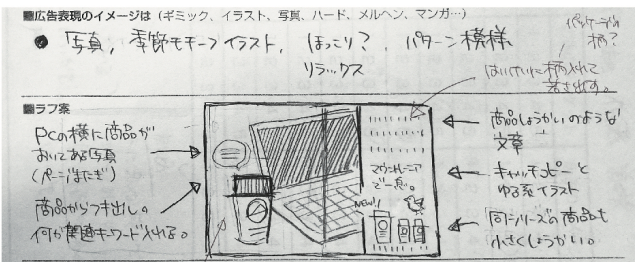 ■広告表現のイメージは（ギミック、イラスト、写真、ハード、メルヘン、マンガ…）
● 写真，季節モチーフイラスト，ほっこり？，パターン模様
リラックス
パッケージの
柄？
はいけいに柄入れて
若さ出す。
■ラフ案
PCの横に商品が
おいてある写真
(ページまたぎ)
商品からフキ出し。
何か関連キーワード入れる。
マウントレーニア
で一息。
NEW!
商品しょうかいのような
文章
キャッチコピーと
ゆる系イラスト
同シリーズの商品も
小さくしょうかい。